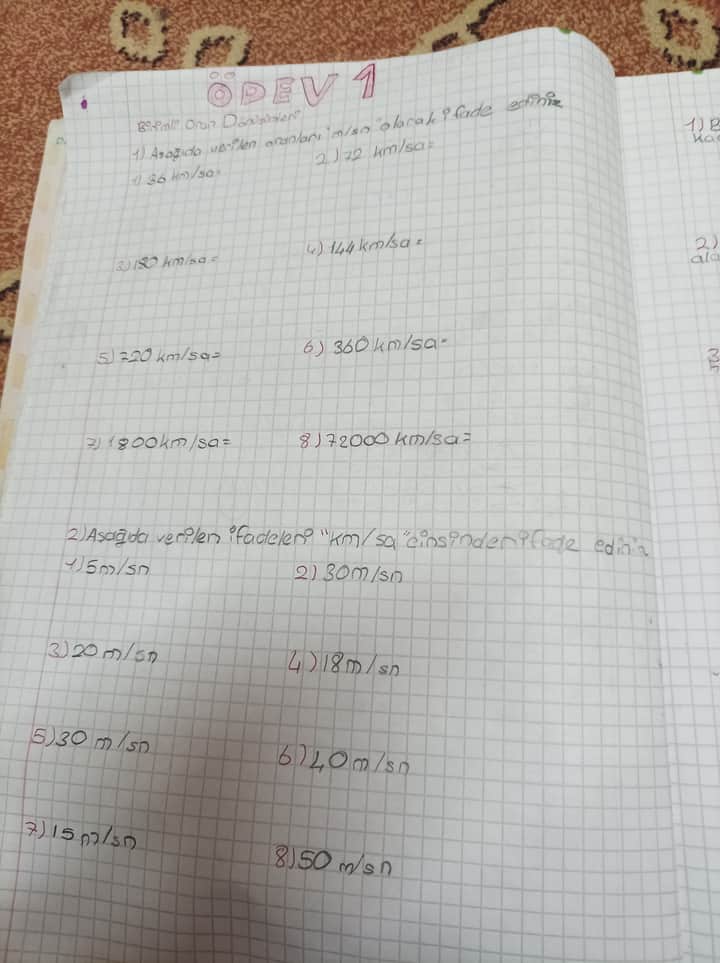 ÖDEV 1
Birimli Oran
1) Aşağıda verilen oranları "m/sn" olarak ifade ediniz
1) 36 km/sa=
2) 72 km/sa=
3) 180 km/sa=
4) 144 km/sa=
5) 720 km/sa=
6) 360 km/sa=
7) 1800 km/sa=
8) 72000 km/sa=
2) Aşağıda verilen ifadeleri "km/sa" cinsinden ifade edin
1) 5 m/sn
2) 30 m/sn
3) 20 m/sn
4) 18 m/sn
5) 30 m/sn
6) 40 m/sn
7) 15 m/sn
8) 50 m/sn
1) B
2)